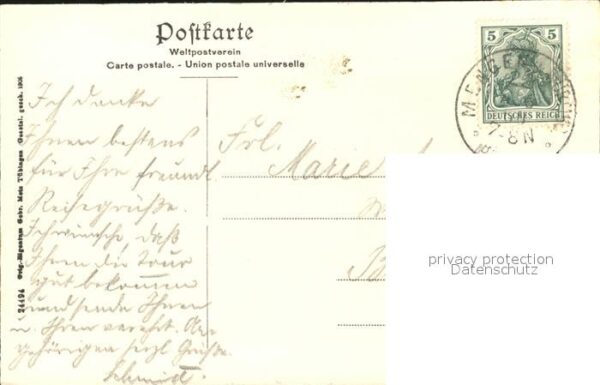 Postkarte
Weltpostverein
Carte postale. - Union postale universelle
5 5
DEUTSCHES REICH
MENGEN
7-8N
24494 Orig.-Eigentum Gebr. Metz Tübingen Gesetzl. gesch. 1905
Ich danke
Ihnen bestens
für Ihre freundl.
Reisegrüße.
Ich wünsche, daß
Ihnen die Tour
gut bekommen
und sende Ihnen
u. Ihren verehrt. An-
gehörigen herzl. Grüße.
Schmid.
Frl.
Marie
privacy protection
Datenschutz